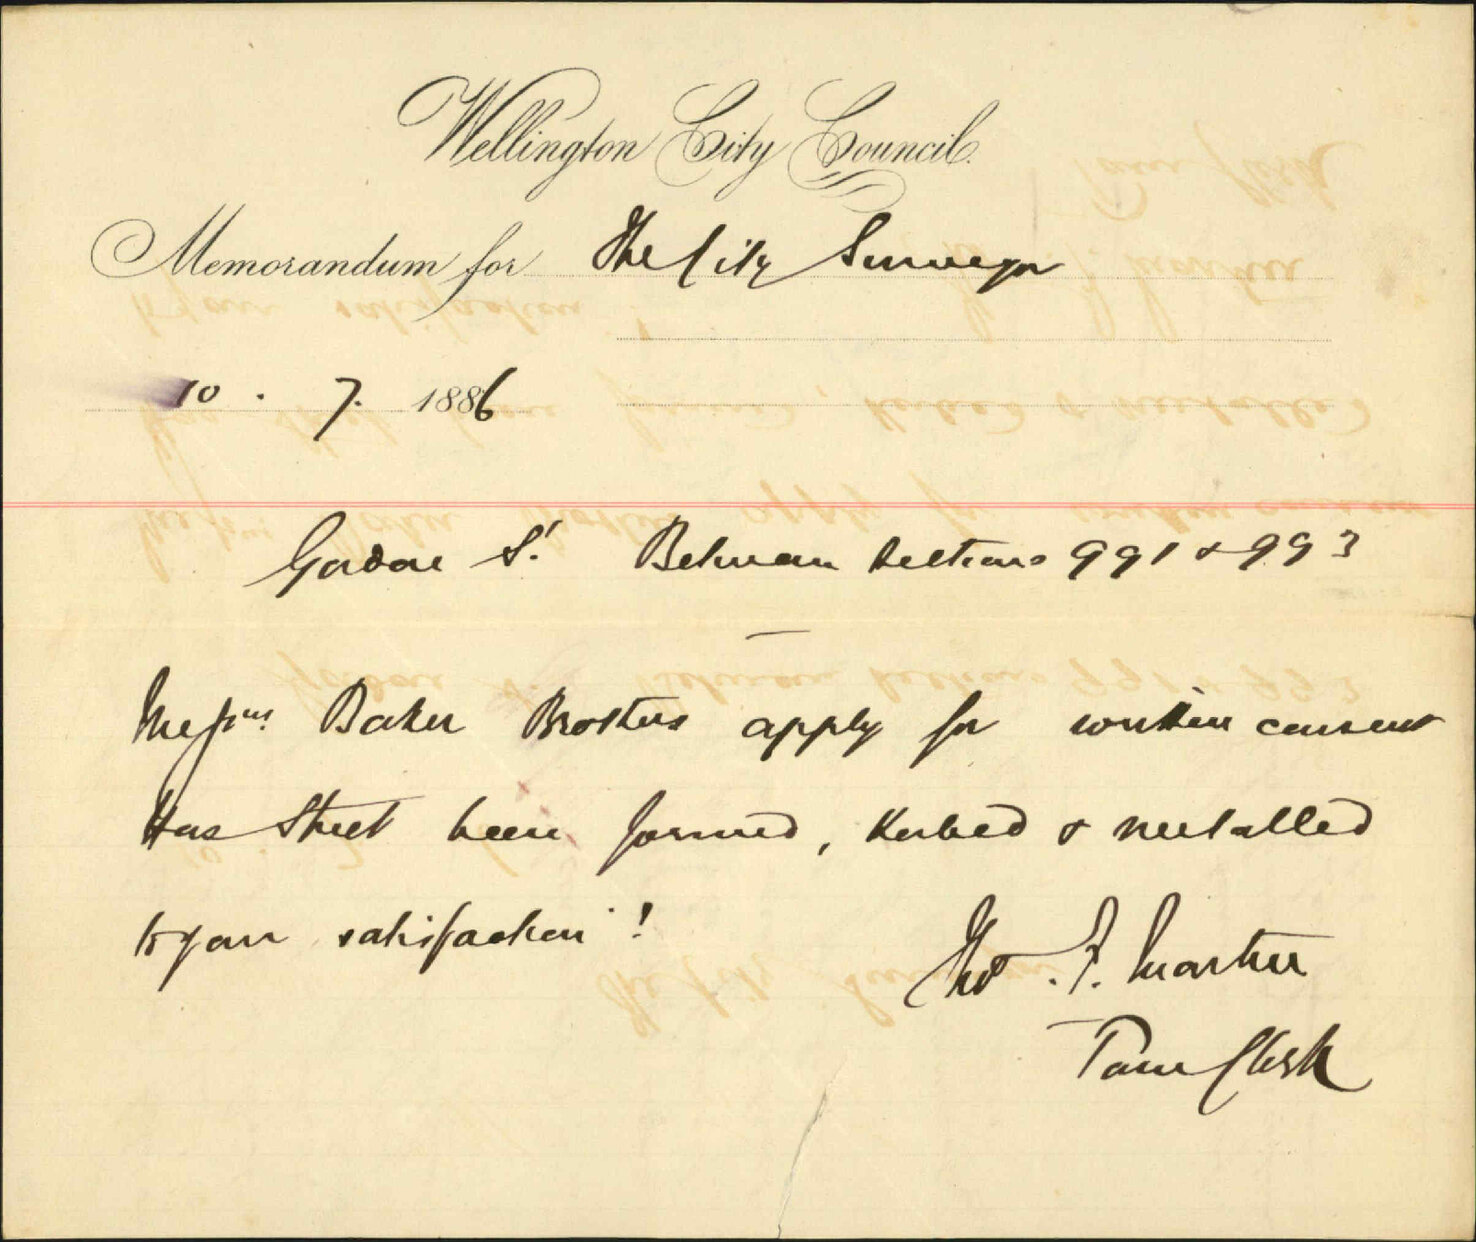 Wellington City Council.
Memorandum for The City Surveyor
10 . 7. 1886
Gordon St. Between Sections 991 & 993
Messrs. Baker Brothers apply for written consent
Has Street been formed, Kerbed & metalled
to your satisfaction!
Tho. F. Martin
Town Clerk